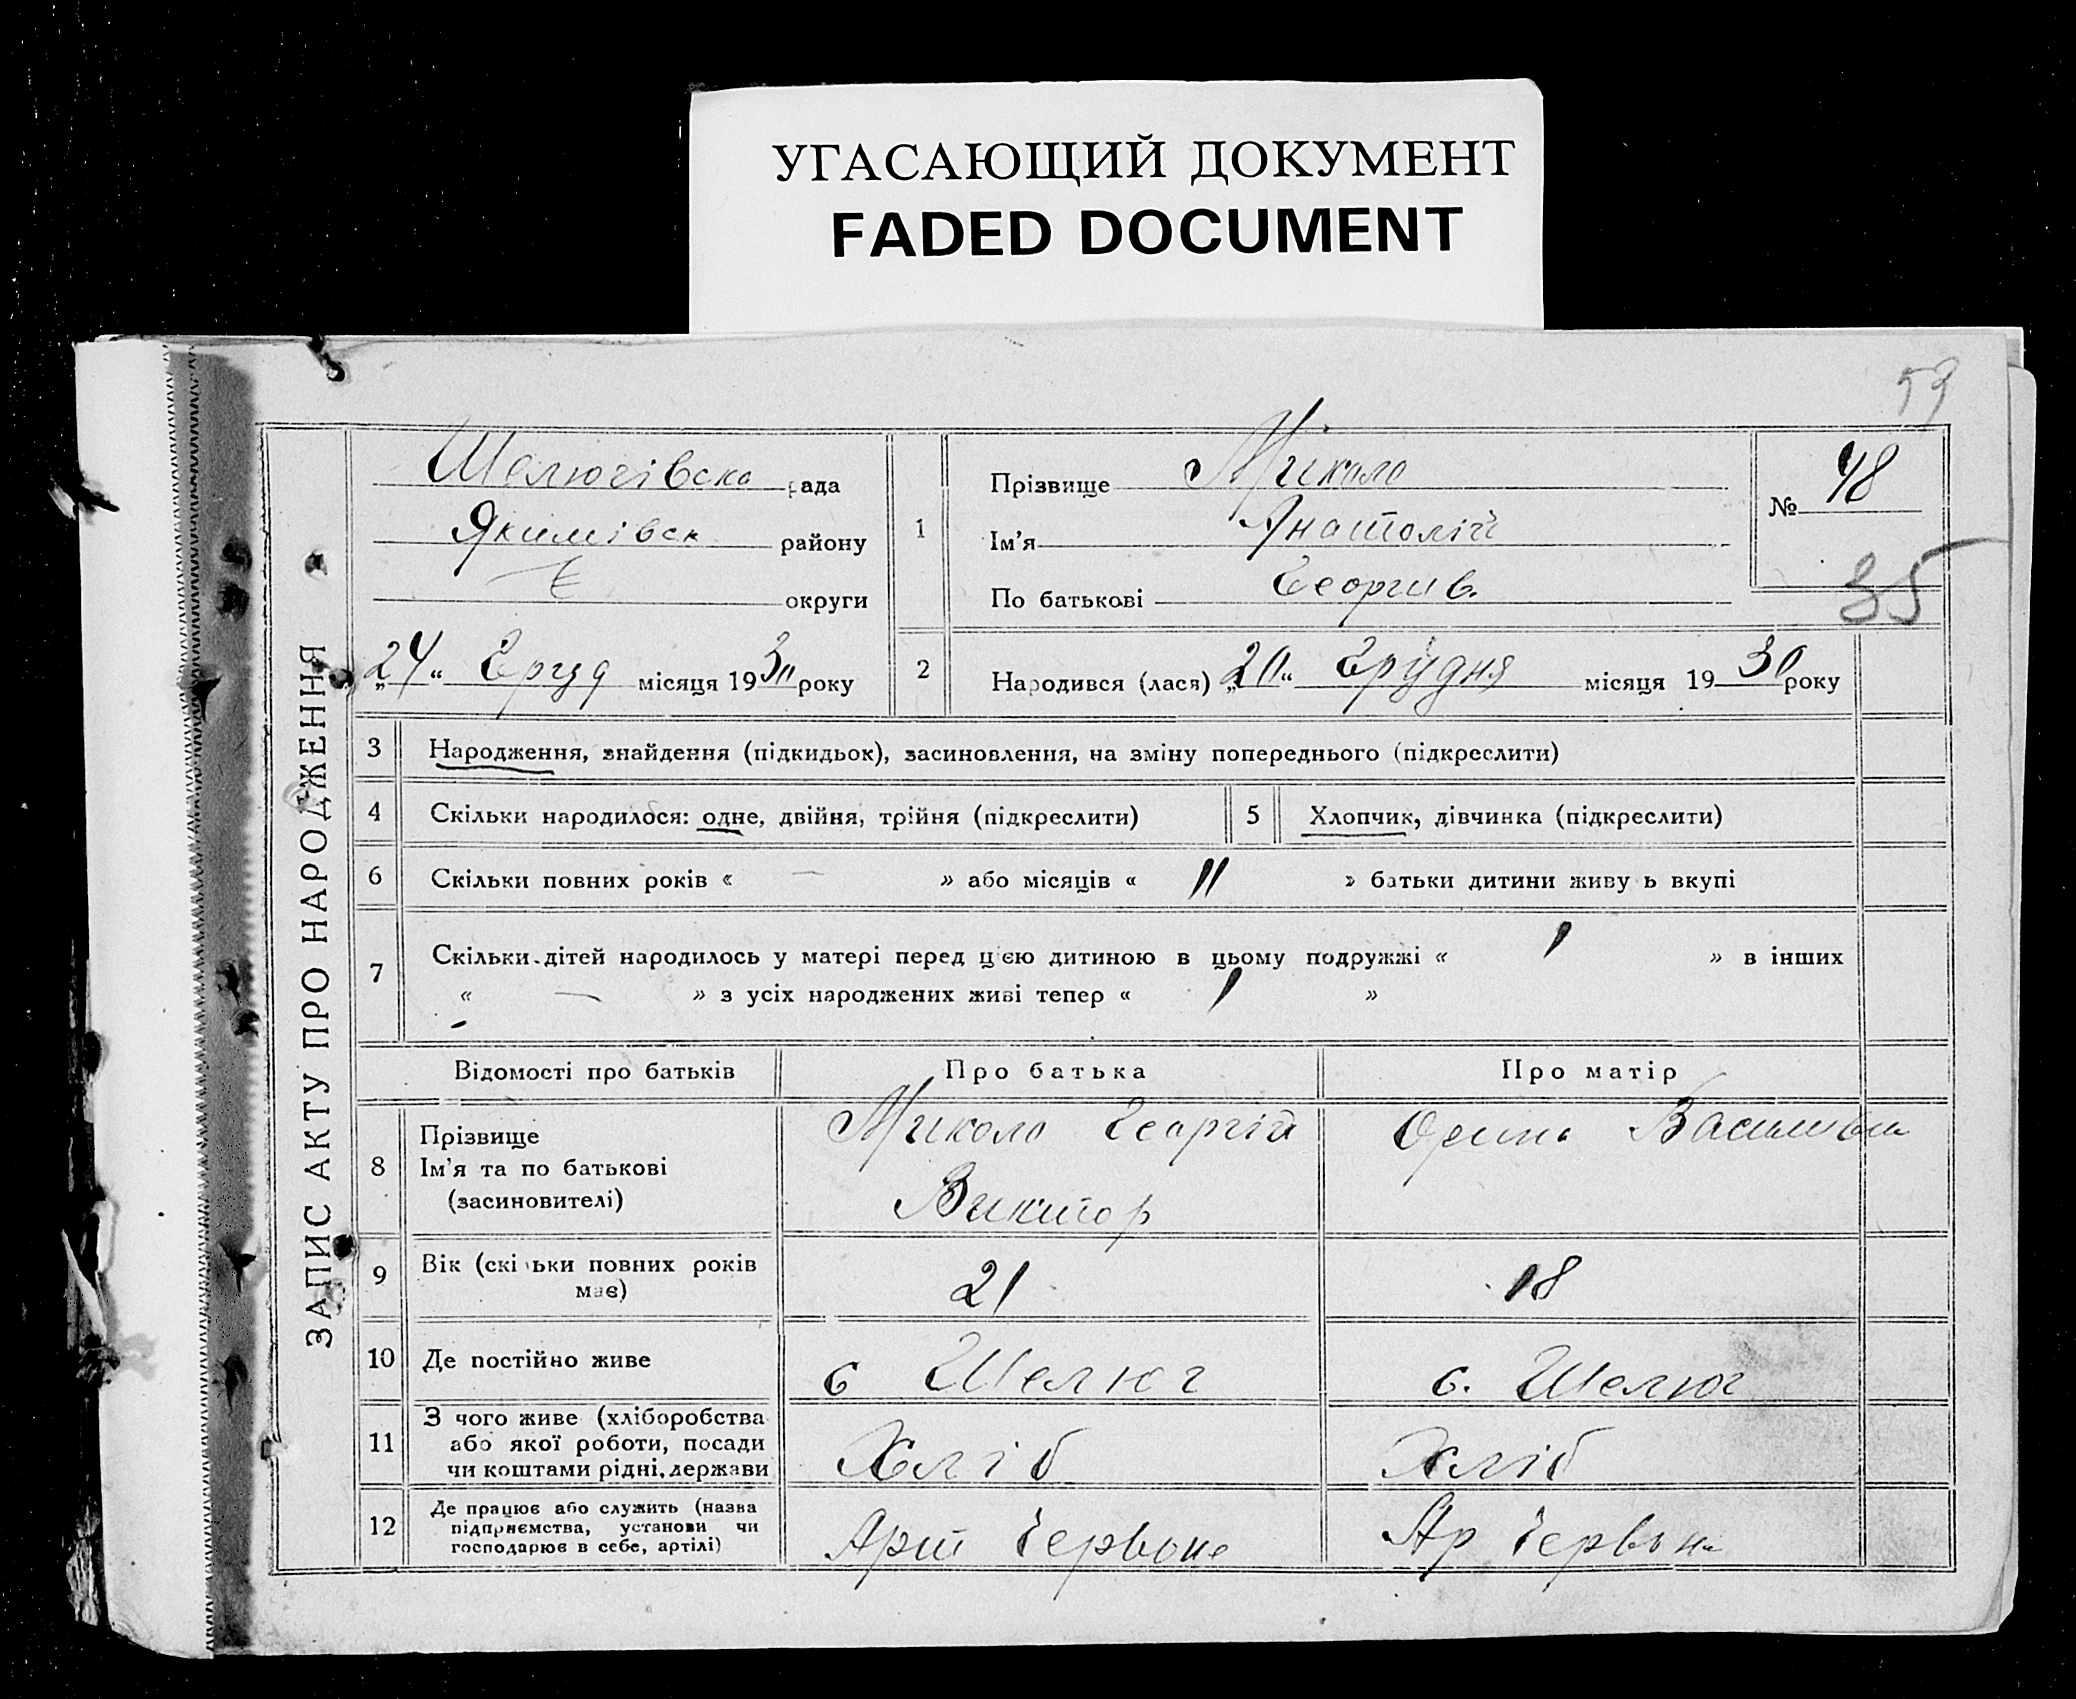 УГАСАЮЩИЙ ДОКУМЕНТ
FADED DOCUMENT
59
ЗАПИС АКТУ ПРО НАРОДЖЕННЯ
Шелюгівска рада
Якимівск району
округи
„24“ Груд місяця 1930 року
1
Прізвище Миколо
Ім'я Анатолій
По батькові Георгив.
№ 48
35
2 Народився (лася) „20“ Грудня місяця 1930 року
3 Народження, знайдення (підкидьок), засиновлення, на зміну попереднього (підкреслити)
4 Скільки народилося: одне, двійня, трійня (підкреслити) 5 Хлопчик, дівчинка (підкреслити)
6 Скільки повних років « — » або місяців « 11 » батьки дитини живу ь вкупі
7 Скільки дітей народилось у матері перед цією дитиною в цьому подружжі « 1 » в інших
« — » з усіх народжених живі тепер « 1 »
Відомості про батьків Про батька Про матір
8 Прізвище
Ім'я та по батькові
(засиновителі)
Миколо Георгій
Виктор
Орина
9 Вік (скільки повних років
має)
21 18
10 Де постійно живе с Шелюг с. Шелюг
11 З чого живе (хліборобства
або якої роботи, посади
чи коштами рідні, держави
Хліб Хліб
12 Де працює або служить (назва
підприємства, установи чи
господарює в себе, артілі)
Арт Червоне Ар Червон